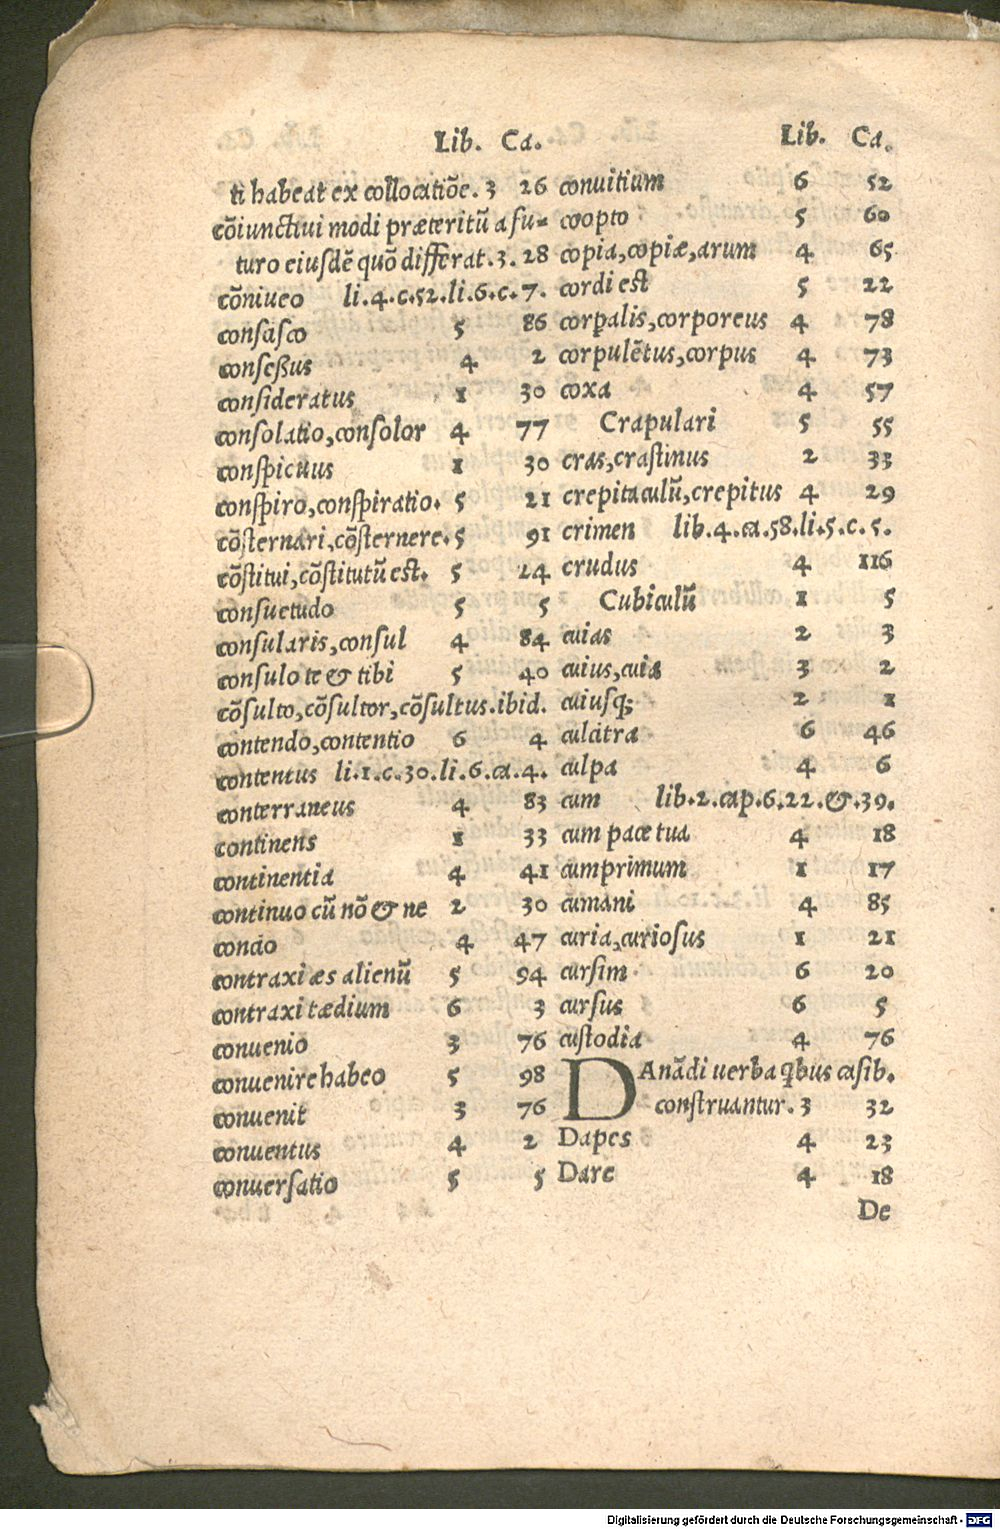 Lib. Ca.
ti habeat ex collocatiõe. 3 26
cõiunctiui modi præteritũ a fu-
turo eiusdẽ quõ differat. 3. 28
cõniueo li. 4. c. 52. li. 6. c. 7.
consasco 5 86
conseßus 4 2
consideratus 1 30
consolatio, consolor 4 77
conspicuus 1 30
conspiro, conspiratio. 5 21
cõsternari, cõsternere. 5 91
cõstitui, cõstitutũ est. 5 24
consuetudo 5 5
consularis, consul 4 84
consulo te & tibi 5 40
cõsulto, cõsultor, cõsultus. ibid.
contendo, contentio 6 4
contentus li. 1. c. 30. li. 6. ca. 4.
conterraneus 4 83
continens 1 33
continentia 4 41
continuo cũ nõ & ne 2 30
concio 4 47
contraxi æs alienũ 5 94
contraxi tædium 6 3
conuenio 3 76
conuenire habeo 5 98
conuenit 3 76
conuentus 4 2
conuersatio 5 5
Lib. Ca.
conuitium 6 52
coopto 5 60
copia, copiæ, arum 4 65
cordi est 5 22
corpalis, corporeus 4 78
corpulẽtus, corpus 4 73
coxa 4 57
Crapulari 5 55
cras, crastinus 2 33
crepitaculũ, crepitus 4 29
crimen lib. 4. ca. 58. li. 5. c. 5.
crudus 4 116
Cubiculũ 1 5
cuias 2 3
cuius, cuia 3 2
cuiusq; 2 1
culcitra 6 46
culpa 4 6
cum lib. 2. cap. 6. 22. &. 39.
cum pace tua 4 18
cumprimum 1 17
cumani 4 85
curia, curiosus 1 21
cursim 6 20
cursus 6 5
custodia 4 76
DAnãdi uerba qbus casib.
construantur. 3 32
Dapes 4 23
Dare 4 18
De
Digitalisierung gefördert durch die Deutsche Forschungsgemeinschaft - DFG